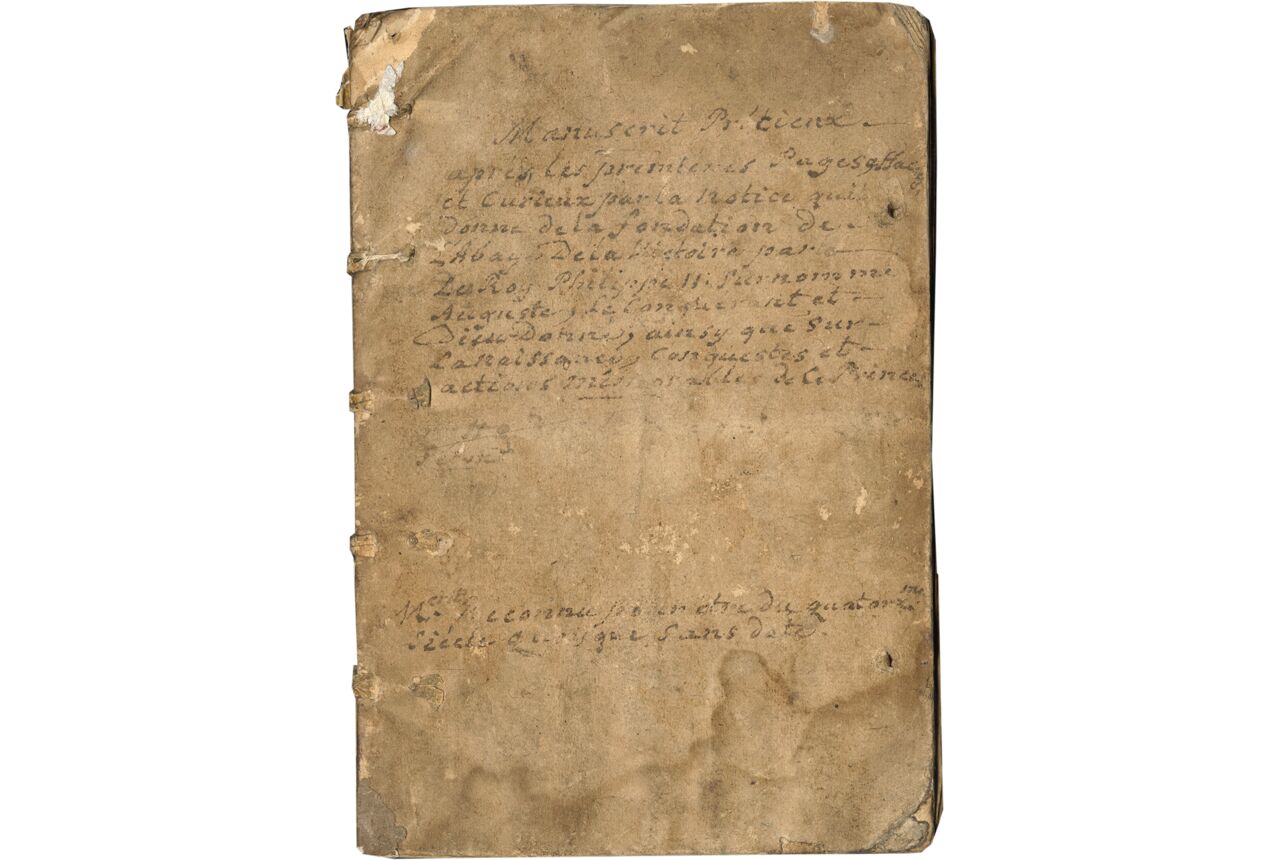 Manuscrit Prétieux
après les premieres Pages
et Curieux par la Notice qu'il
Donne de la fondation de
L'Abaye De la Victoire par
Le Roy Philippe II. Surnommé
Auguste, le Conquerant et
Dieu-Donné, ainsy que sur
La naissance, Conquestes et
actions mémorables de Ce Prince
Reconnu pour être du quatorzme
Siécle quoyque sans date.